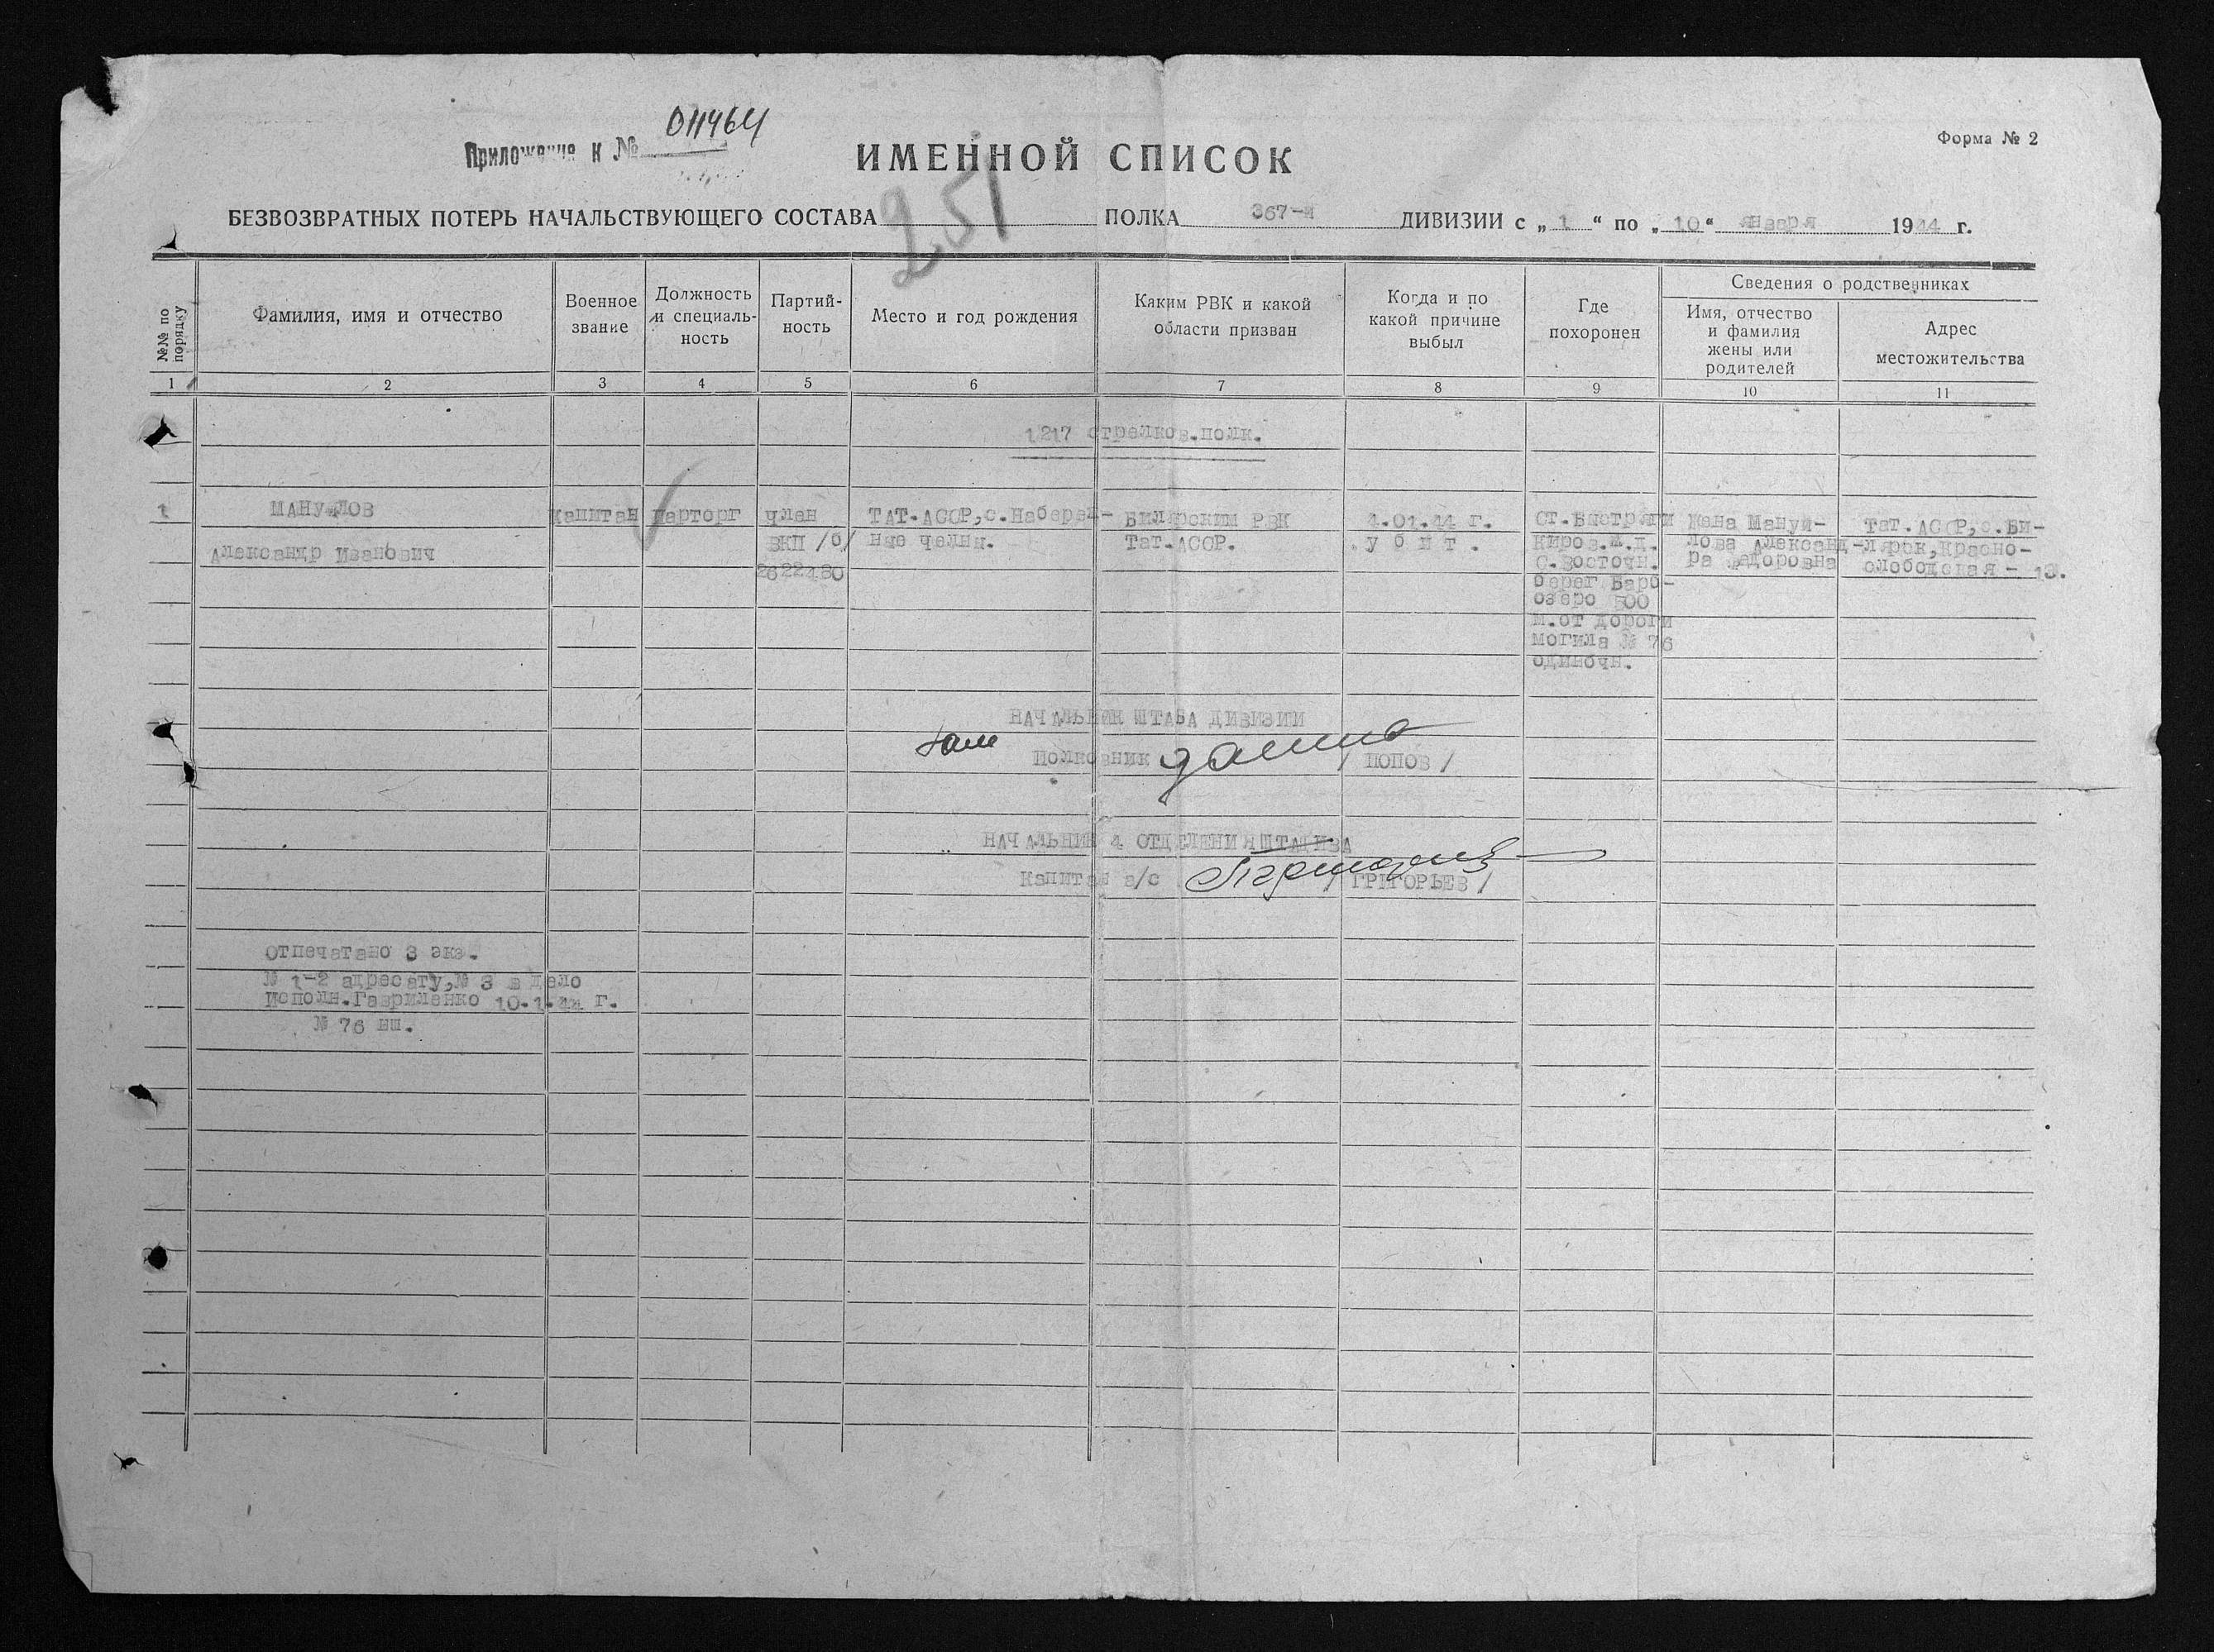 Приложение к № 011464
ИМЕННОЙ СПИСОК
Форма № 2
251
БЕЗВОЗВРАТНЫХ ПОТЕРЬ НАЧАЛЬСТВУЮЩЕГО СОСТАВА ПОЛКА 367-й ДИВИЗИИ с „ 1 “ по „ 10 “ января 1944 г.
№№ по порядку
Фамилия, имя и отчество
Военное
звание
Должность
и специаль-
ность
Партий-
ность
Место и год рождения
Каким РВК и какой
области призван
Когда и по
какой причине
выбыл
Где
похоронен
Сведения о родственниках
Имя, отчество
и фамилия
жены или
родителей
Адрес
местожительства
1 2 3 4 5 6 7 8 9 10 11
1217 стрелков.полк.
1
МАНУЙЛОВ
Александр Иванович
Капитан
парторг
член
ВКП /б/
2622480
ТАТ.АССР,с.Набереж-
ные Челны.
Билярским РВК
Тат.АССР.
4.01.44 г.
у б и т .
Ст.Быстряги
Киров.ж.д.
С.Восточн.
берег Барб-
озеро 500
м.от дороги
могила № 76
одиночн.
Жена Мануй-
лова Александ-
ра Федоровна
Тат.АССР,с.Би-
лярск,Красно-
слободская - 13.
НАЧАЛЬНИК ШТАБА ДИВИЗИИ
Полковник / ПОПОВ /
НАЧАЛЬНИК 4 ОТДЕЛЕНИЯ ШТАДИВА
Капитан а/с / ГРИГОРЬЕВ /
Отпечатано 3 экз.
№ 1-2 адресату,№ 3 в дело
Исполн.Гавриленко 10.1.44 г.
№ 76 вш.